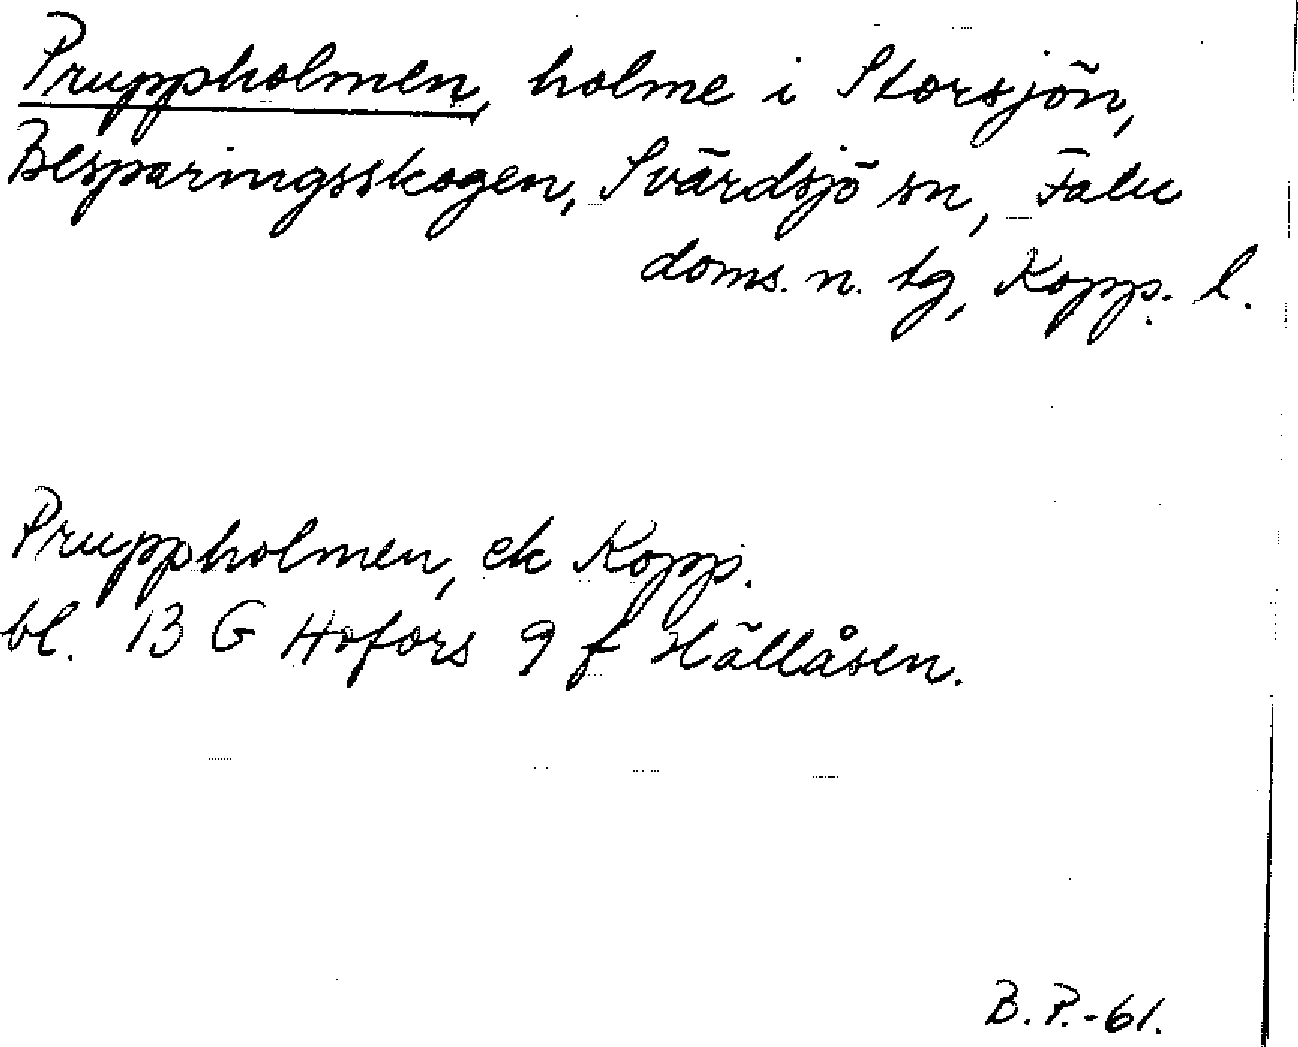 Pruppholmen, holme i Storsjön,
Besparingsskogen, Svärdsjö sn, Falu
doms. n. tg, Kopp. l.
Pruppholmen, ek Kopp.
bl. 13 G Hofors 9 f Hällåsen.
B. P. -61.